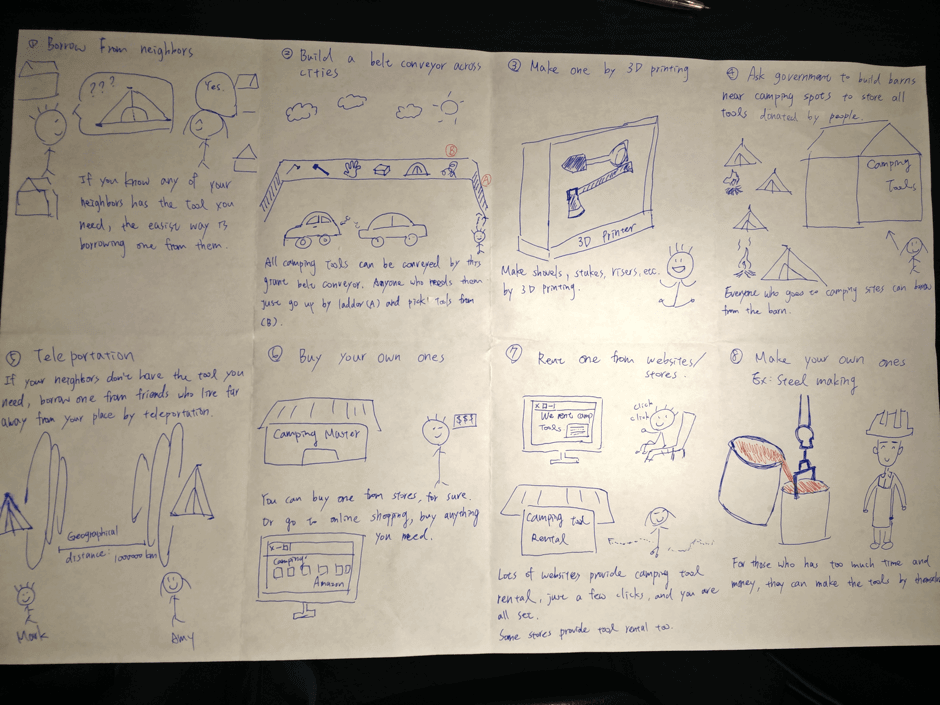 ① Borrow From neighbors
???
Yes.
If you know any of your
neighbors has the tool you
need, the easist way is
borrowing one from them.
② Build a belt conveyor across
cities
B
A
All camping tools can be conveyed by this
giant belt conveyor. Anyone who needs them
just go up by ladder (A) and pick tools from
(B).
③ Make one by 3D printing
3D Printer
Make shovels, stakes, risers, etc.
by 3D printing.
④ Ask government to build barns
near camping spots to store all
tools donated by people.
Camping
Tools
Everyone who goes to camping sites can borrow
from the barn.
⑤ Teleportation
If your neighbors don't have the tool you
need, borrow one from friends who live far
away from your place by teleportation.
Geographical
distance: 1000000 km
Mark
Amy
⑥ Buy your own ones
$$$
Camping Master
You can buy one from stores, for sure.
Or go to online shopping, buy anything
you need.
Camping
Amazon
⑦ Rent one from websites/
stores.
We rent camp
Tools
click
click
Camping Tool
Rental
Lots of websites provide camping tool
rental, just a few clicks, and you are
all set.
Some stores provide tool rental too.
⑧ Make your own ones
Ex: Steel making
For those who has too much time and
money, they can make the tools by